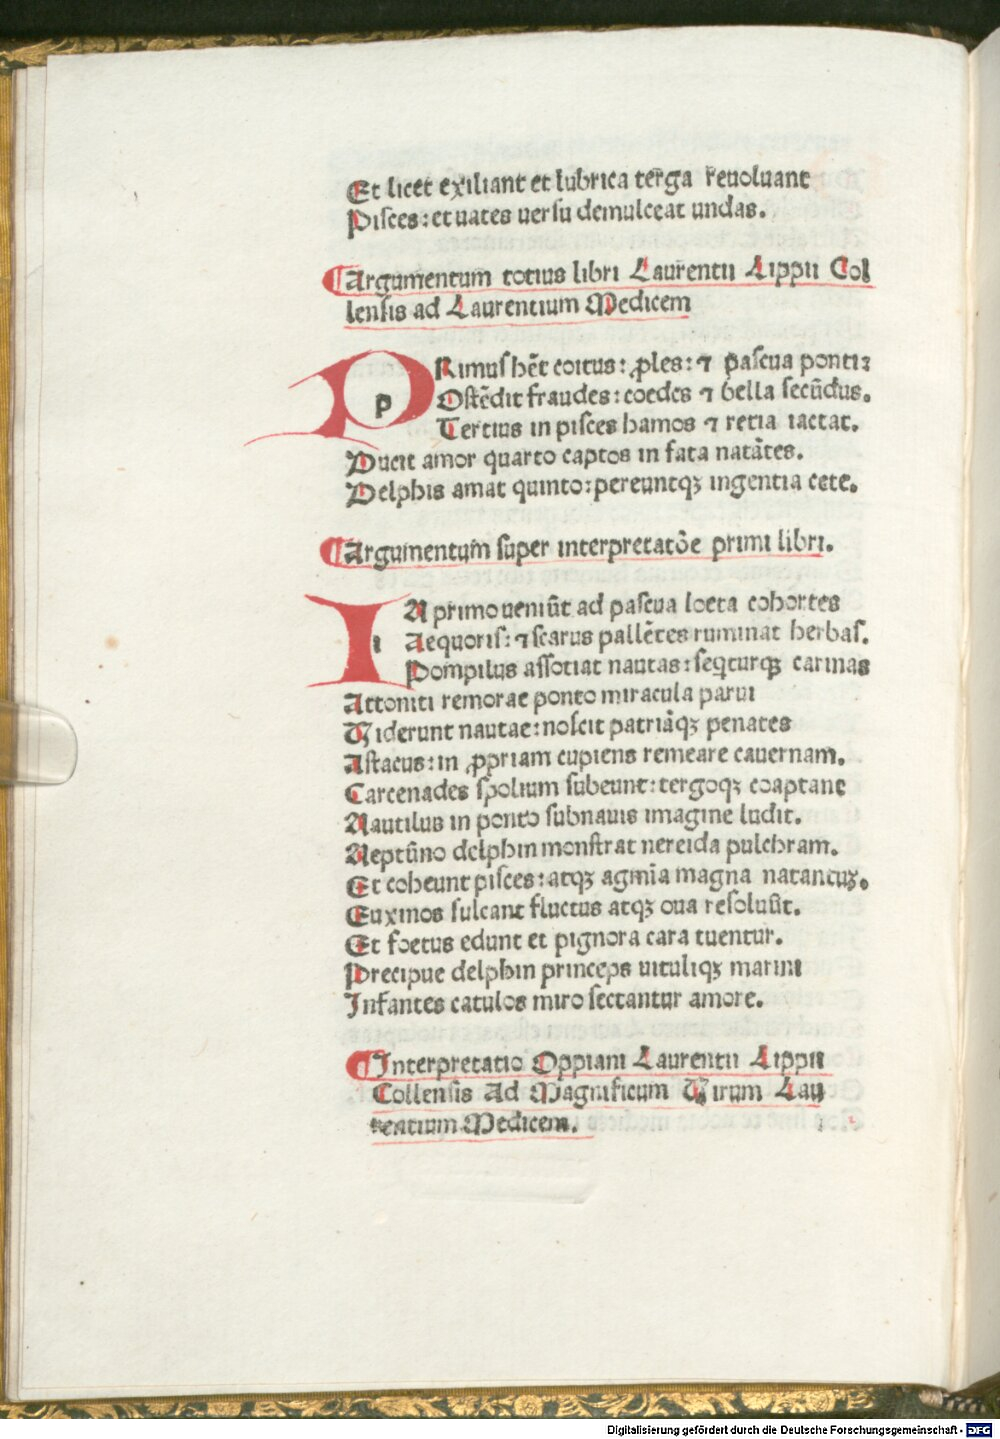 Et licet exiliant et lubrica terga reuoluant
Pisces: et uates uersu demulceat undas.
¶Argumentum totius libri Laurentii Lippii Col
lensis ad Laurentium Medicem
PRimus hẽt coitus: ꝓles: ⁊ pascua ponti:
Ostẽdit fraudes: coedes ⁊ bella secũdus.
Tertius in pisces hamos ⁊ retia iactat.
Ducit amor quarto captos in fata natãtes.
Delphis amat quinto: pereuntqꝫ ingentia cete.
¶Argumentum super interpretatõe primi libri.
IN primo ueniũt ad pascua loeta cohortes
Aequoris: ⁊ scarus pallẽtes ruminat herbas.
Pompilus assotiat nautas: seq̃turqꝫ carinas
Attoniti remorae ponto miracula parui
Viderunt nautae: noscit patriãqꝫ penates
Astacus: in ꝓpriam cupiens remeare cauernam.
Carcenades spolium subeunt: tergoqꝫ coaptant
Nautilus in ponto subnauis imagine ludit.
Neptũno delphin monstrat nereida pulchram.
Et coheunt pisces: atqꝫ agmĩa magna natantuꝫ.
Euxinos sulcant fluctus atqꝫ oua resoluũt.
Et foetus edunt et pignora cara tuentur.
Precipue delphin princeps uituliqꝫ marini
Infantes catulos miro sectantur amore.
¶Interpretatio Oppiani Laurentii Lippii
Collensis Ad Magnificum Virum Lau
rentium Medicem.
Digitalisierung gefördert durch die Deutsche Forschungsgemeinschaft - DFG